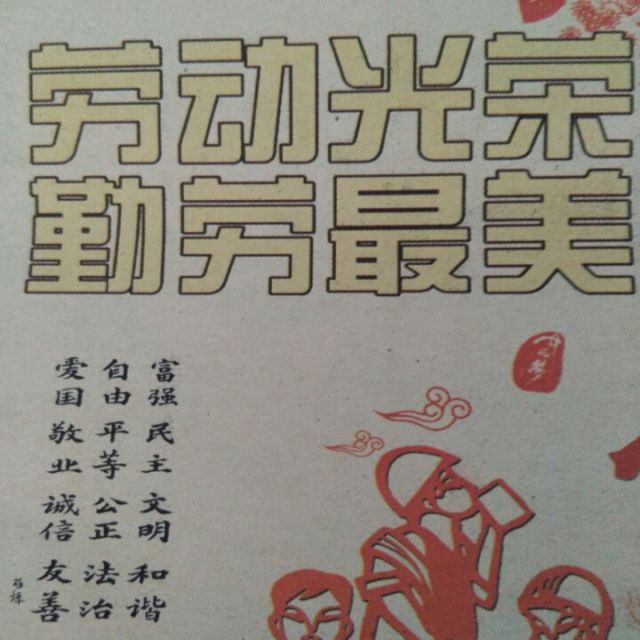 劳动光荣
勤劳最美
富强民主文明和谐
自由平等公正法治
爱国敬业诚信友善